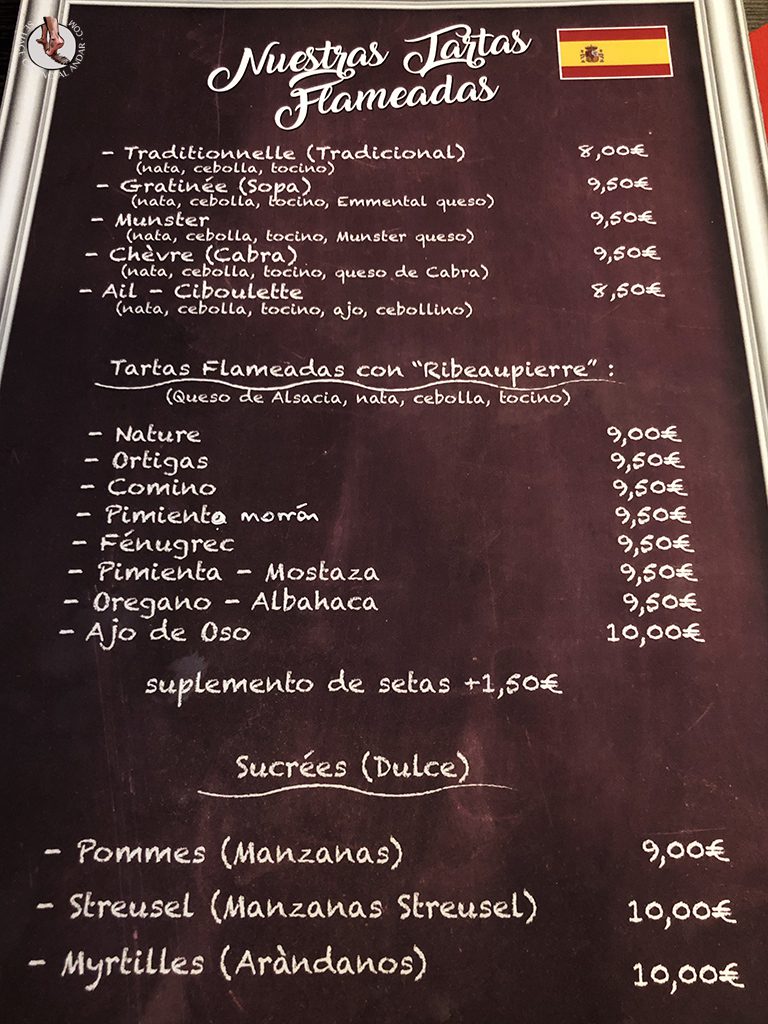 Nuestras Tartas
Flameadas
- Traditionnelle (Tradicional) 8,00€
(nata, cebolla, tocino)
- Gratinée (Sopa) 9,50€
(nata, cebolla, tocino, Emmental queso)
- Munster 9,50€
(nata, cebolla, tocino, Munster queso)
- Chèvre (Cabra) 9,50€
(nata, cebolla, tocino, queso de Cabra)
- Ail - Ciboulette 8,50€
(nata, cebolla, tocino, ajo, cebollino)
Tartas Flameadas con "Ribeaupierre" :
(Queso de Alsacia, nata, cebolla, tocino)
- Nature 9,00€
- Ortigas 9,50€
- Comino 9,50€
- Pimiento morrón 9,50€
- Fénugrec 9,50€
- Pimienta - Mostaza 9,50€
- Oregano - Albahaca 9,50€
- Ajo de Oso 10,00€
suplemento de setas +1,50€
Sucrées (Dulce)
- Pommes (Manzanas) 9,00€
- Streusel (Manzanas Streusel) 10,00€
- Myrtilles (Aràndanos) 10,00€